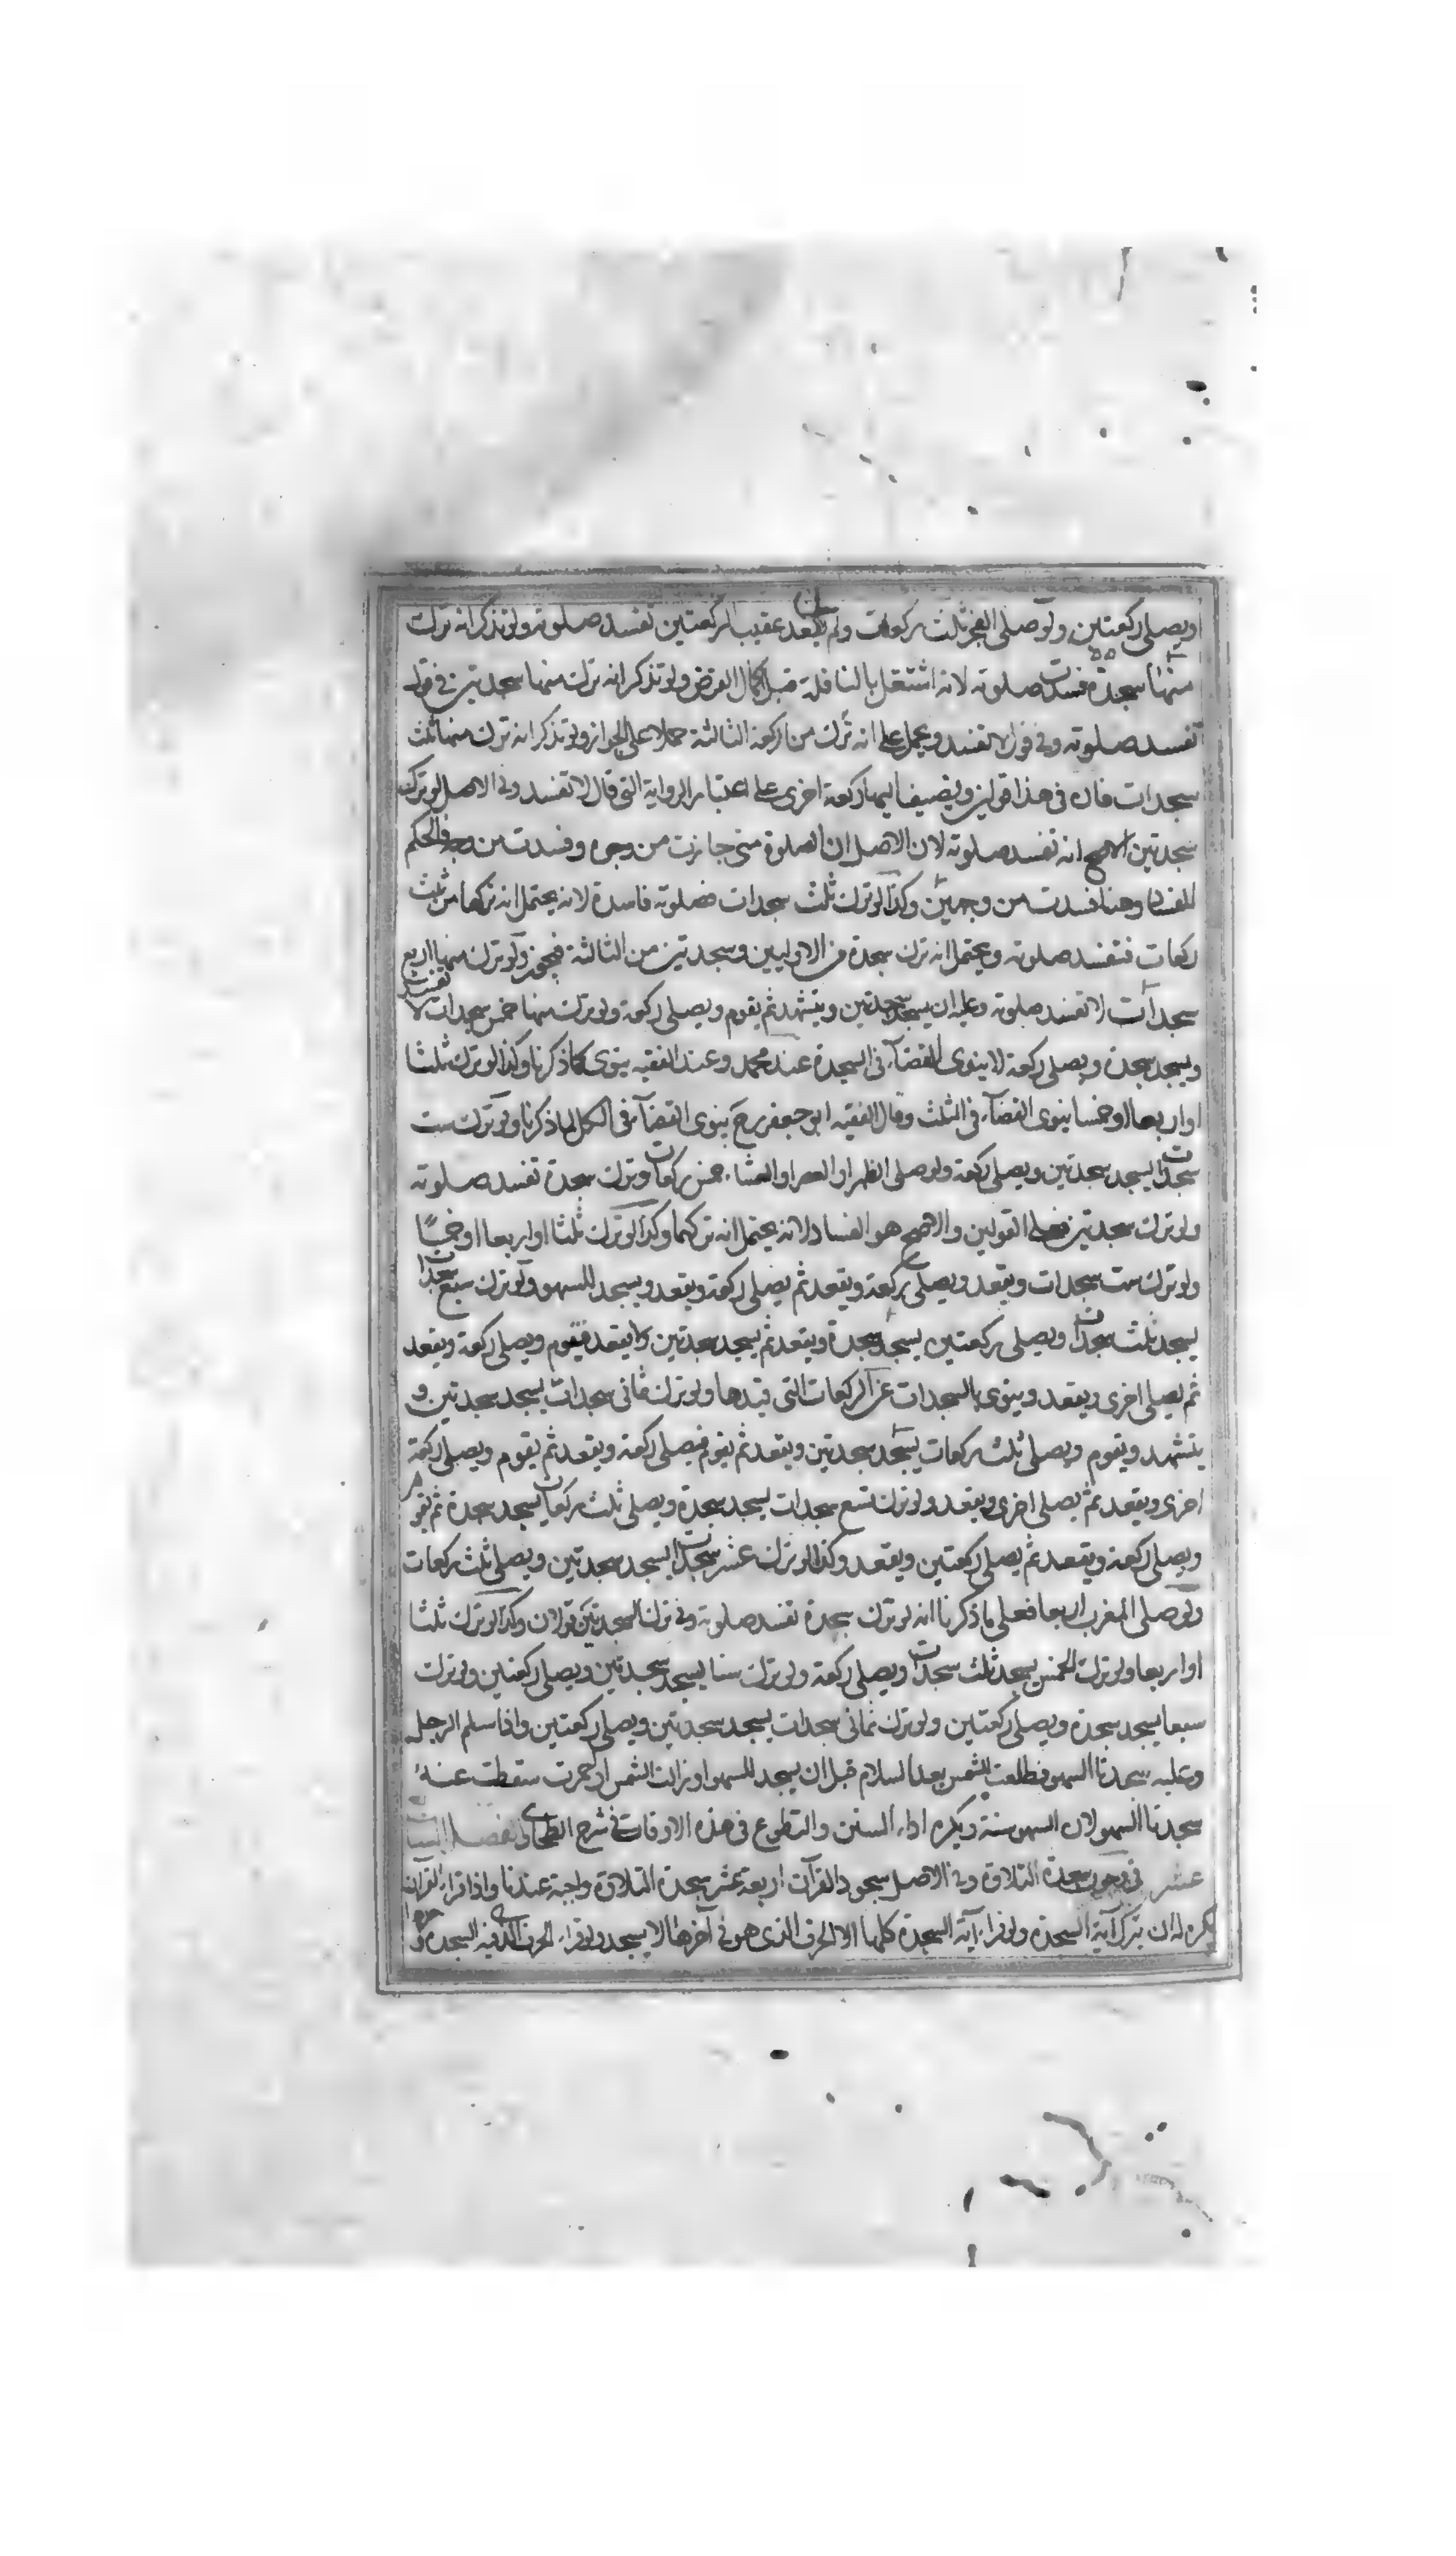 ويصلى ركعتين ولو صلى الفجر ثلث ركعات ولم يقعد عقيب الركعتين تفسد صلوته ولو تذكر انه ترك
منها سجدة فسدت صلوته لانه اشتغل بالنافلة قبل اكمال الفرض ولو تذكر انه ترك منها سجدتين فى قول
تفسد صلوته وفى قول لا تفسد ويحمل على انه ترك من الركعة الثالثة حملا على الجواز ولو تذكر انه ترك منها ثلث
سجدات فان فى هذا قولين ويضيف اليها ركعة اخرى على اعتبار الرواية التى قال لا تفسد وفى الاصل لو ترك
سجدتين الاصح انه تفسد صلوته لان الاصل ان الصلوة متى جازت من وجه وفسدت من وجه فالحكم
للفساد وهنا فسدت من وجهين وكذا لو ترك ثلث سجدات فصلوته فاسدة لانه يحتمل انه تركها من ثلث
ركعات فتفسد صلوته ويحتمل انه ترك سجدة من الاوليين وسجدتين من الثالثة فيجوز ولو ترك منها اربع
سجدات لا تفسد صلوته وعليه ان يسجد سجدتين ويتشهد ثم يقوم ويصلى ركعة ولو ترك منها خمس سجدات لا تفسد
ويسجد سجدة ويصلى ركعة لا ينوى القضاء فى السجدة عند محمد وعند الفقيه ينوى كما ذكرنا وكذا لو ترك ثلثا
او اربعا او خمسا ينوى القضاء فى الثلث وقال الفقيه ابو جعفر رح ينوى القضاء فى الكل لما ذكرنا ولو ترك ست
سجدات يسجد سجدتين ويصلى ركعة ولو صلى الظهر او العصر او العشاء خمس ركعات وترك سجدة تفسد صلوته
ولو ترك سجدتين فعلى القولين والاصح هو الفساد لانه يحتمل انه تركهما وكذا لو ترك ثلثا او اربعا او خمسا
ولو ترك ست سجدات ويقعد ويصلى ركعة ويقعد ثم يصلى ركعة ويقعد ويسجد للسهو ولو ترك سبع سجدات
يسجد ثلث سجدات ويصلى ركعتين يسجد سجدة ويقعد ثم يسجد سجدتين ولا يقعد فيقوم ويصلى ركعة ويقعد
ثم يصلى اخرى ويقعد وينوى بالسجدات عن الركعات التى قيدها ولو ترك ثمانى سجدات يسجد سجدتين و
يتشهد ويقوم ويصلى ثلث ركعات يسجد سجدتين ويقعد ثم يقوم فيصلى ركعة ويقعد ثم يقوم ويصلى ركعة
اخرى ويقعد ثم يصلى اخرى ويقعد ولو ترك تسع سجدات يسجد سجدة ويصلى ثلث ركعات يسجد سجدة ثم يقوم
ويصلى ركعة ويقعد ثم يصلى ركعتين ويقعد وكذا لو ترك عشر سجدات يسجد سجدتين ويصلى ثلث ركعات
ولو صلى المغرب اربعا فعلى ما ذكرنا انه لو ترك سجدة تفسد صلوته وفى ترك السجدتين قولان وكذا لو ترك ثلثا
او اربعا ولو ترك الخمس يسجد ثلث سجدات ويصلى ركعة ولو ترك ستا يسجد سجدتين ويصلى ركعتين ولو ترك
سبعا يسجد سجدة ويصلى ركعتين ولو ترك ثمانى سجدات يسجد سجدتين ويصلى ركعتين واذا سلم الرجل
وعليه سجدتا السهو فطلعت الشمس بعد السلام قبل ان يسجد للسهو او زالت الشمس او احمرت سقطت عنه
سجدتا السهو لان السهو سنة ويكره اداء السنن والتطوع فى هذه الاوقات فى شرح الطحاوى الفصل
عشر فى سجدة التلاوة وفى الاصل سجود القرآن اربعة عشر سجدة التلاوة واجبة عندنا واذا قراء القرآن
يكره له ان يترك آية السجدة ولو قراء آية السجدة كلها الا الحرف الذى هو فى آخرها لا يسجد ولو قراء الحرف الذى فيه السجدة